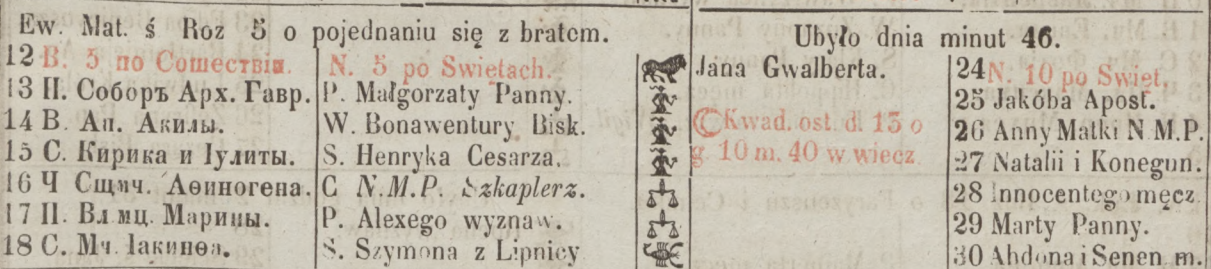 Ew. Mat. ś Roz 5 o pojednaniu się z bratem. Ubyło dnia minut 46.
12 В. 5 по Сошествіи. N. 5 po Swiętach. Jana Gwalberta. 24 N. 10 po Swięt.
13 П. Соборъ Арх. Гавр. P. Małgorzaty Panny. 25 Jakóba Apost.
14 В. Ап. Акилы. W. Bonawentury Bisk. Kwad. ost. d. 15 o 26 Anny Matki N M.P.
15 С. Кирика и Іулиты. S. Henryka Cesarza. g. 10 m. 40 w wiecz 27 Natalii i Konegun.
16 Ч Сщмч. Аѳиногена. C N.M.P. Szkaplerz. 28 Innocentego męcz
17 П. Вл мц. Марины. P. Alexego wyznaw. 29 Marty Panny.
18 С. Мч. Іакинѳа. S. Szymona z Lipnicy 30 Abdona i Senen m.